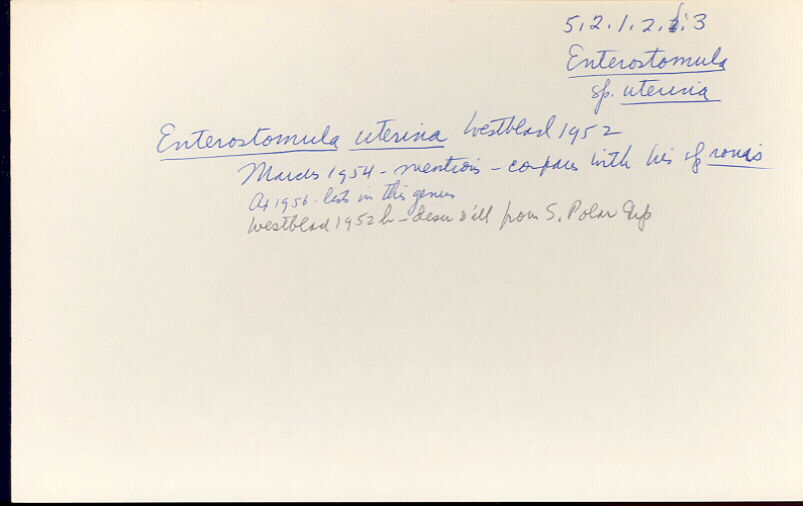 5.2.1.2. .3
Enterostomula
sp. uterina
Enterostomula uterina Westblad 1952
Marcus 1954 - mentions - compares with his sp
Ax 1956 - lists in this genus
Westblad 1952 b - descr & ill from S. Polar Exp